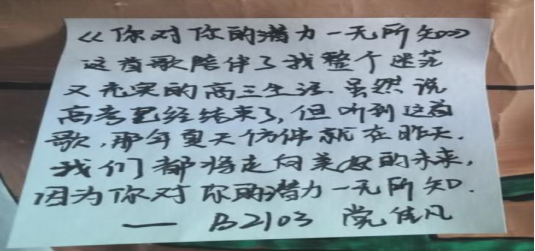 《你对你的潜力一无所知》
这首歌陪伴了我整个迷茫
又充实的高三生活.虽然说
高考已经结束了,但听到这首
歌,那年夏天仿佛就在昨天.
我们都将走向美好的未来,
因为你对你的潜力一无所知.
—— B2103 党佳凡